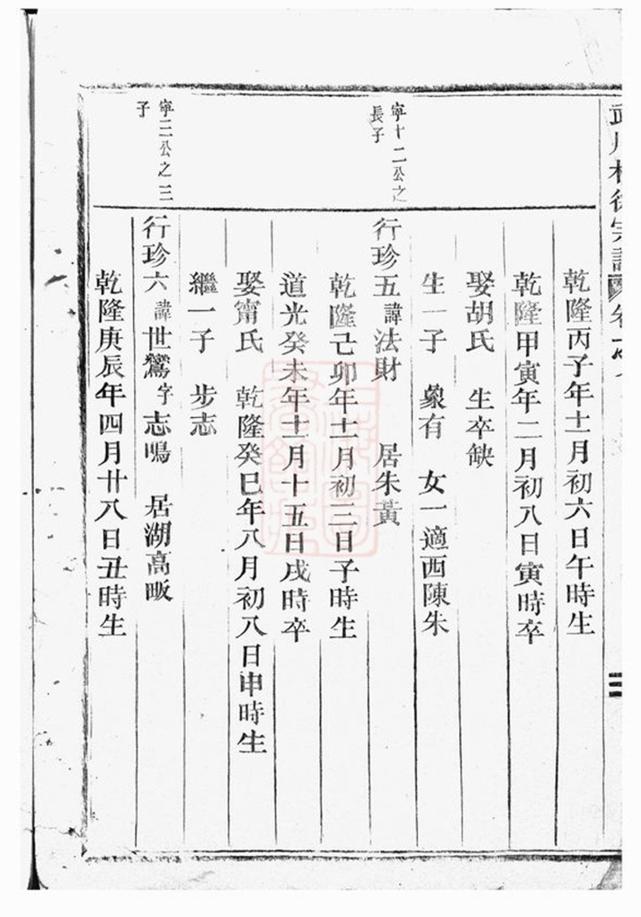 宗譜 卷
乾隆丙子年十一月初六日午時生
乾隆甲寅年二月初八日寅時卒
娶胡氏 生卒缺
生一子 象有 女一適西陳朱
寧十二公之
長子
行珍五諱法財 居朱黃
乾隆己卯年十一月初三日子時生
道光癸未年十一月十五日戌時卒
娶甯氏 乾隆癸巳年八月初八日申時生
繼一子 步志
寧三公之三
子
行珍六諱世鶯字志鳴 居湖高畈
乾隆庚辰年四月廿八日丑時生